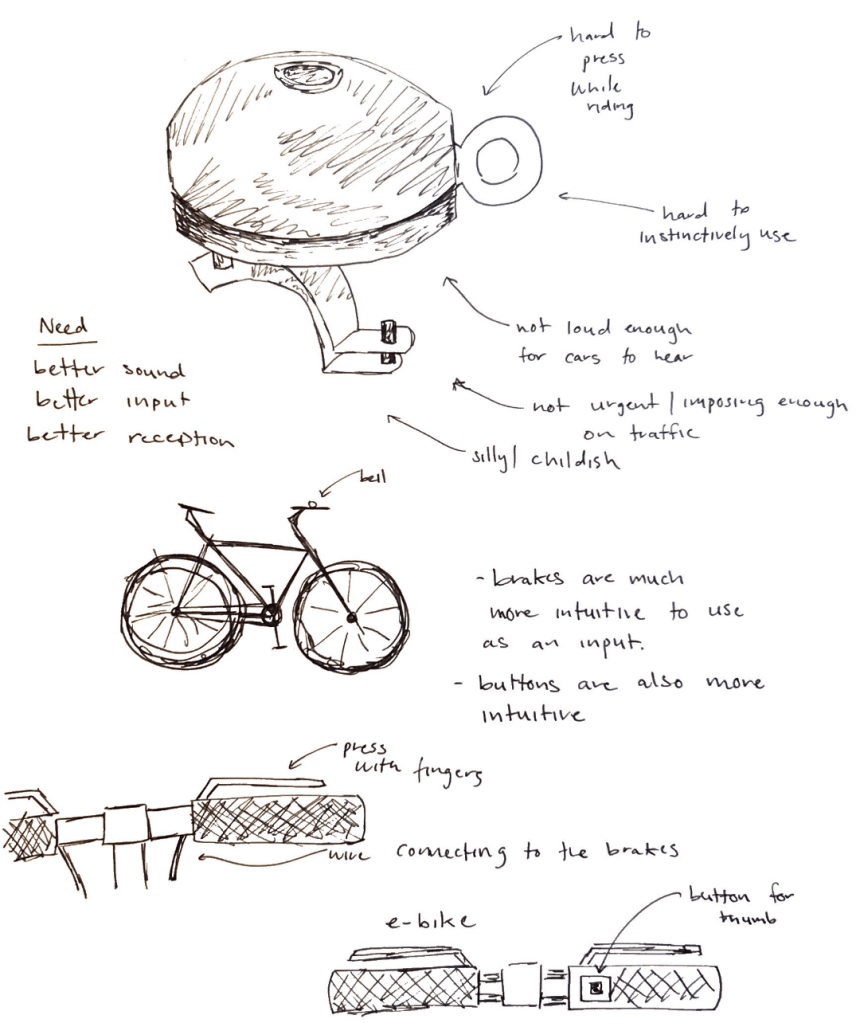 hard to
press
while
riding
hard to
instinctively use
not loud enough
for cars to hear
not urgent / imposing enough
on traffic
silly / childish
Need
better sound
better input
better reception
bell
- brakes are much
more intuitive to use
as an input.
- buttons are also more
intuitive
press
with fingers
wire connecting to the brakes
e-bike
button for
thumb